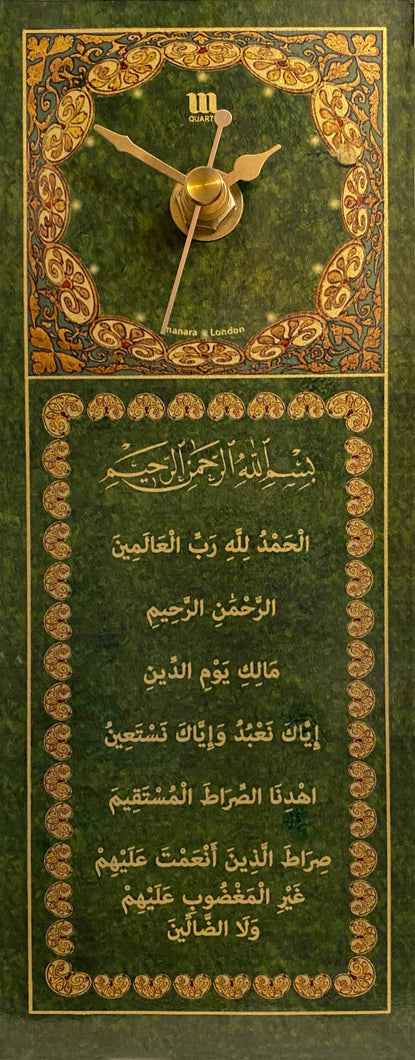 m
QUARTZ
manara London
بِسْمِ اللهِ الرَّحْمٰنِ الرَّحِيْمِ
الْحَمْدُ لِلَّهِ رَبِّ الْعَالَمِينَ
الرَّحْمَٰنِ الرَّحِيمِ
مَالِكِ يَوْمِ الدِّينِ
إِيَّاكَ نَعْبُدُ وَإِيَّاكَ نَسْتَعِينُ
اهْدِنَا الصِّرَاطَ الْمُسْتَقِيمَ
صِرَاطَ الَّذِينَ أَنْعَمْتَ عَلَيْهِمْ
غَيْرِ الْمَغْضُوبِ عَلَيْهِمْ
وَلَا الضَّالِّينَ